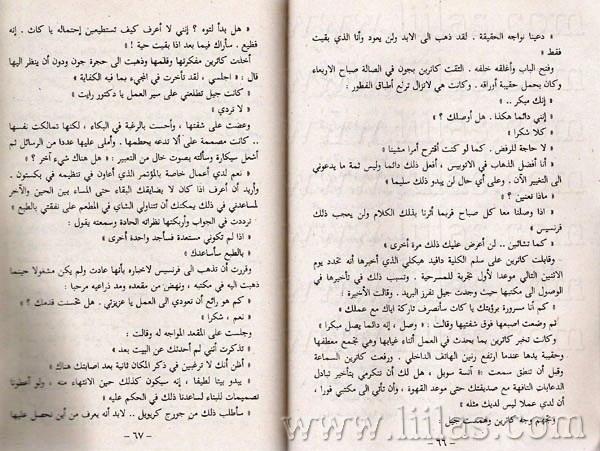 « دعينا نواجه الحقيقة . لقد ذهب الى الابد ولن يعود وأنا الذي بقيت
فقط »
وفتح الباب وأغلقه خلفه . التقت كاترين بجون في الصالة صباح الاربعاء
وكان يحمل حقيبة أوراقه . وكانت هي لاتزال ترفع أطباق الفطور :
« إنك مبكر .. »
« إنني دائما هكذا . هل أوصلك ؟ »
« كلا شكرا »
« لا حاجة للرفض . كما لو كنت أقترح أمرا مشينا »
« أنا أفضل الذهاب في الاتوبيس ، أفعل ذلك دائما وليس ثمة ما يدعوني
الى التغيير الآن . وعلى أي حال لن يبدو ذلك سليما »
« ماذا تعنين ؟ »
« اذا وصلنا معا كل صباح فربما أثرنا بذلك الكلام ولن يعجب ذلك
فرنسيس »
« كما تشائين .. لن أعرض عليك ذلك مرة أخرى »
وقابلت كاترين على سلم الكلية دافيد هيكلي الذي أخبرها أنه تحدد يوم
الاثنين التالي موعدا لأول تجربة للمسرحية . وتسبب ذلك في تأخيرها في
الوصول الى مكتبها حيث وجدت جيل تفرز البريد . وقالت الأخيرة :
« كم أنا مسرورة برؤيتك يا كات سأنصرف تاركة اياك مع عملك »
ثم وضعت اصبعها فوق شفتيها وقالت : « وصل ، إنه دائما يصل مبكرا »
وكانت تخبر كاترين بما يحدث في العمل أثناء غيابها وهي تجمع معطفها
وحقيبة يدها عندما ارتفع رنين الهاتف الداخلي . ورفعت كاترين السماعة
وقبل أن تنطق سمعت : « آنسة سويل ، هل لك أن تتكرمي بتأخير تبادل
الدعابات التافهة مع صديقتك حتى موعد القهوة ، وأن تأتي الى مكتبي فورا ،
أن لدي عملا ليس لديك مثله »
وتجهم وجه كاترين وهمست جيل :
- ٦٦ -
« هل بدأ لتوه ؟ إنني لا أعرف كيف تستطيعين إحتماله يا كات . إنه
فظيع . سأراك فيما بعد اذا بقيت حية ! »
أخذت كاترين مفكرتها وقلمها ودخلت الى حجرة جون ودون أن ينظر اليها
قال : « اجلسي ، لقد تأخرت في المجيء بما فيه الكفاية »
« كانت جيل تطلعني على سير العمل يا دكتور رايت »
« لا تردي »
وعضت على شفتها ، وأحست بالرغبة في البكاء ، لكنها تمالكت نفسها
. كانت مصممة على ألا تدعه يحطمها . وأملى عليها عددا من الرسائل ثم
أشعل سيكارة وسألته بصوت خال من التعبير : « هل هناك شيء آخر ؟ »
« نعم لدي أعمال خاصة بالمؤتمر الذي أعاون في تنظيمه في بكستون .
وأريد أن أعرف اذا كان لا يضايقك البقاء حتى المساء بين الحين والآخر
لمساعدتي في ذلك يمكنك أن تتناولي الشاي في المطعم على نفقتي بالطبع »
ترددت في الجواب وأربكتها نظراته الحادة وسمعته يقول :
« اذا لم تكوني مستعدة فسأجد واحدة أخرى »
« بالطبع سأساعدك »
وقررت أن تذهب الى فرنسيس لاخباره بأنها عادت ولم يكن مشغولا حينما
ذهبت اليه في مكتبه ، ونهض من مقعده ومد ذراعيه مرحبا :
« كم هو رائع أن تعودي الى العمل يا عزيزتي . هل تحسنت قدمك ؟ »
« نعم ، شكرا »
وجلست على المقعد المواجه له وقالت :
« تذكرت أنني لم أحدثك عن البيت بعد »
« أظن أنك لا ترغبين في ذكر المكان ثانية بعد اصابتك هناك »
« يبدو بيتا لطيفا ، إنه سيكون كذلك حين الانتهاء منه ، ولو أعطونا
تصميمات للبناء لساعدنا ذلك في الحكم عليه »
« سأطلب ذلك من جورج كريويل .. لابد أنه يعرف من أين نحصل عليها
- ٦٧ -
www.liilas.com